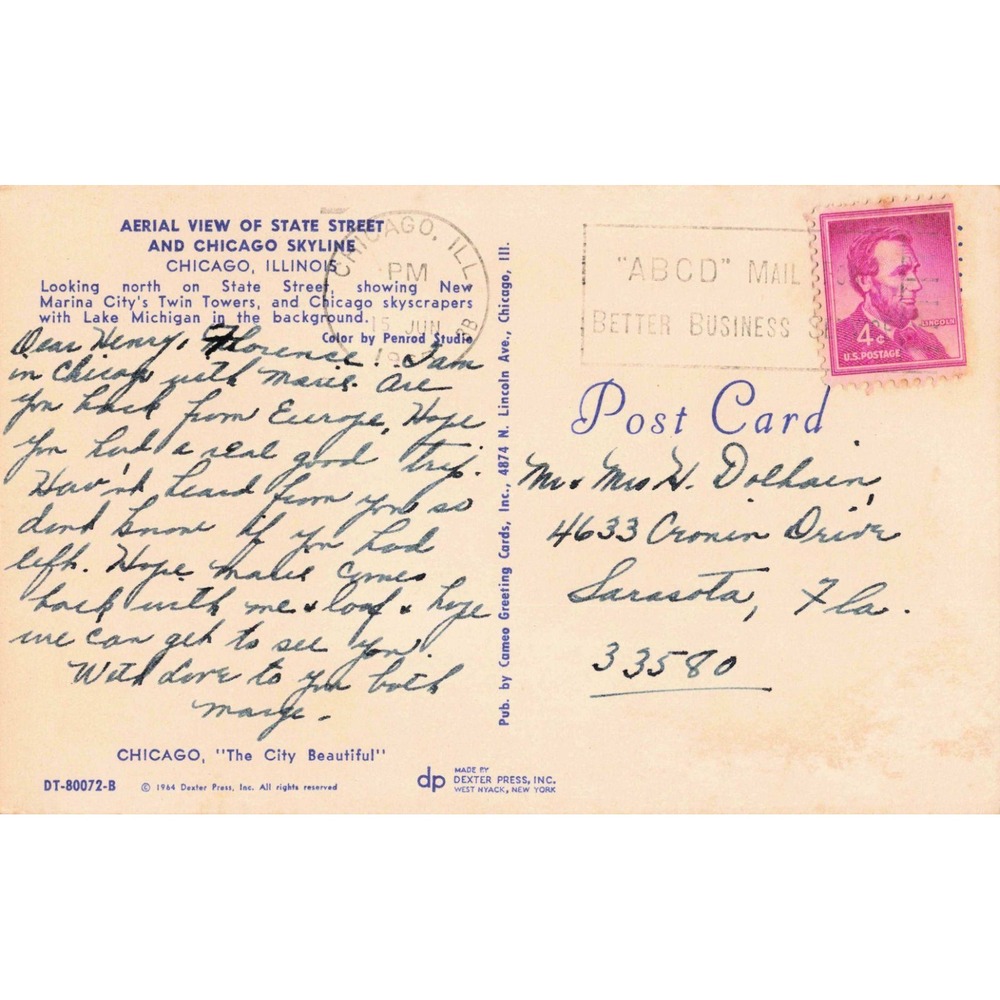 AERIAL VIEW OF STATE STREET
AND CHICAGO SKYLINE
CHICAGO, ILLINOIS
Looking north on State Street showing New
Marina City's Twin Towers, and Chicago skyscrapers
with Lake Michigan in the background.
Color by Penrod Studio
Dear Henry, Florence. I am
in Chicago with Marie. Are
you back from Europe. Hope
you had a real good trip.
Hav'nt heard from you so
dont know if you had
left. Hope Marie comes
back with me & loaf & hope
we can get to see you.
With Love to you both
Marge.
CHICAGO, "The City Beautiful"
DT-80072-B
© 1964 Dexter Press, Inc. All rights reserved
dp
MADE BY
DEXTER PRESS, INC.
WEST NYACK, NEW YORK
Pub. by Cameo Greeting Cards, Inc., 4874 N. Lincoln Ave., Chicago, Ill.
CHICAGO, ILL
PM
15 JUN
"ABCD" MAIL
BETTER BUSINESS
LINCOLN
4¢
U.S. POSTAGE
Post Card
Mr & Mrs H. Dolhain,
4633 Cronin Drive
Sarasota, Fla.
33580